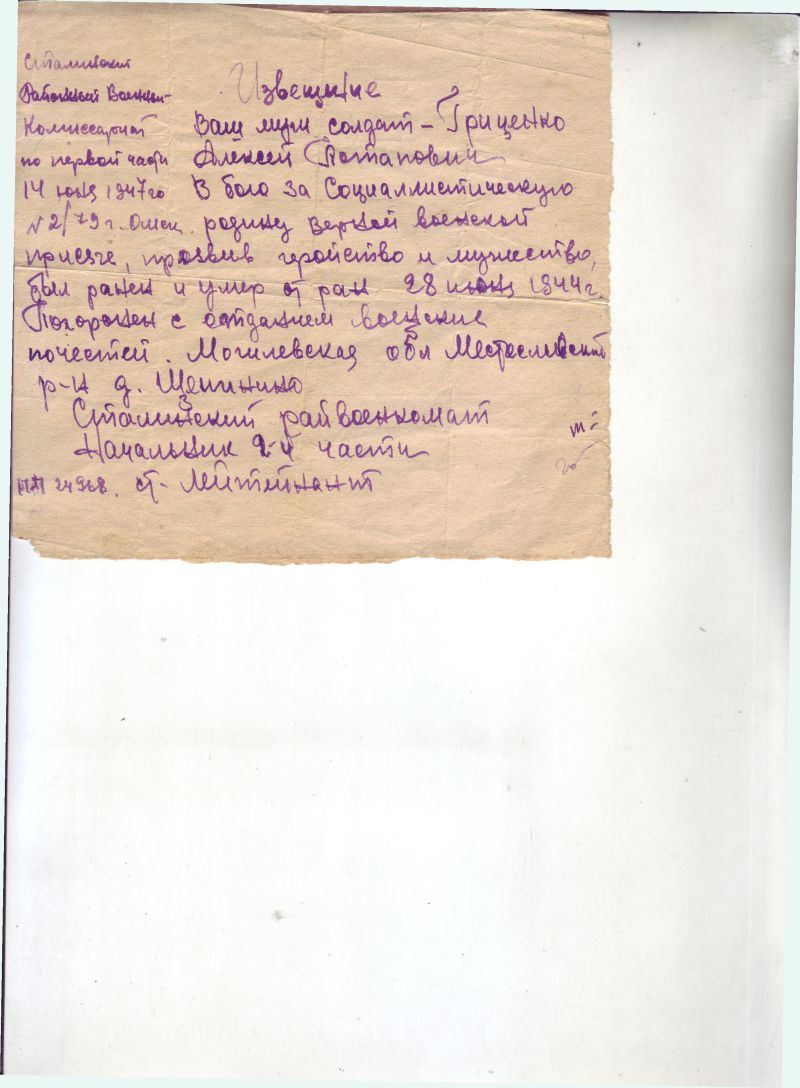 Сталинский
Районный Военный
Комиссариат
по первой части
14 июня 1947го
N 2/79 г. Омск.
Извещние
Ваш муж солдат - Гриценко
Алексей Потапович
В бою за Социаллистическую
родину верной воинской
присяге, проявив геройство и мужество,
был ранен и умер от ран 28 июня 1944г.
Похоронен с отданием воинские
почестей. Могилевская обл
р-н д.
Сталинский райвоенкомат
Начальник 2-й части
24968. ст. Лейтенант